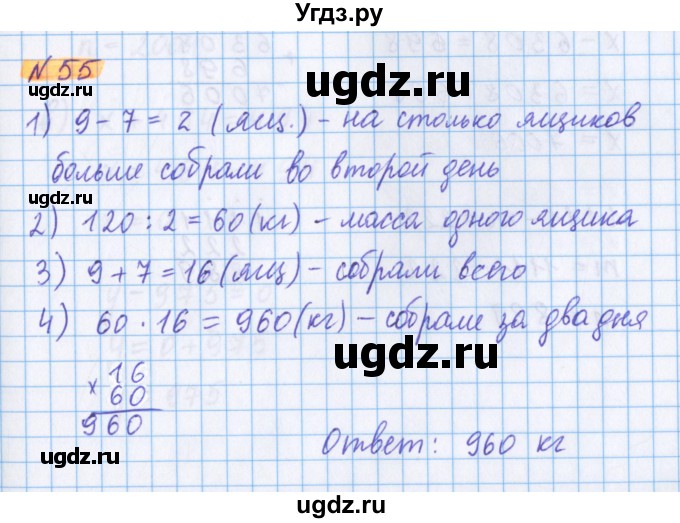 Угдз.ру
N 55
ugdz.ru
ugdz.ru
1) 9 - 7 = 2 (ящ.) - на столько ящиков
больше собрали во второй день
ugdz.ru
ugdz.ru
2) 120 : 2 = 60 (кг) - масса одного ящика
3) 9 + 7 = 16 (ящ) - собрали всего
ugdz.ru
4) 60 · 16 = 960 (кг) - собрали за два дня
ugdz.ru
16
× 60
960
Ответ: 960 кг
ugdz.ru
ugdz.ru
ugdz.ru